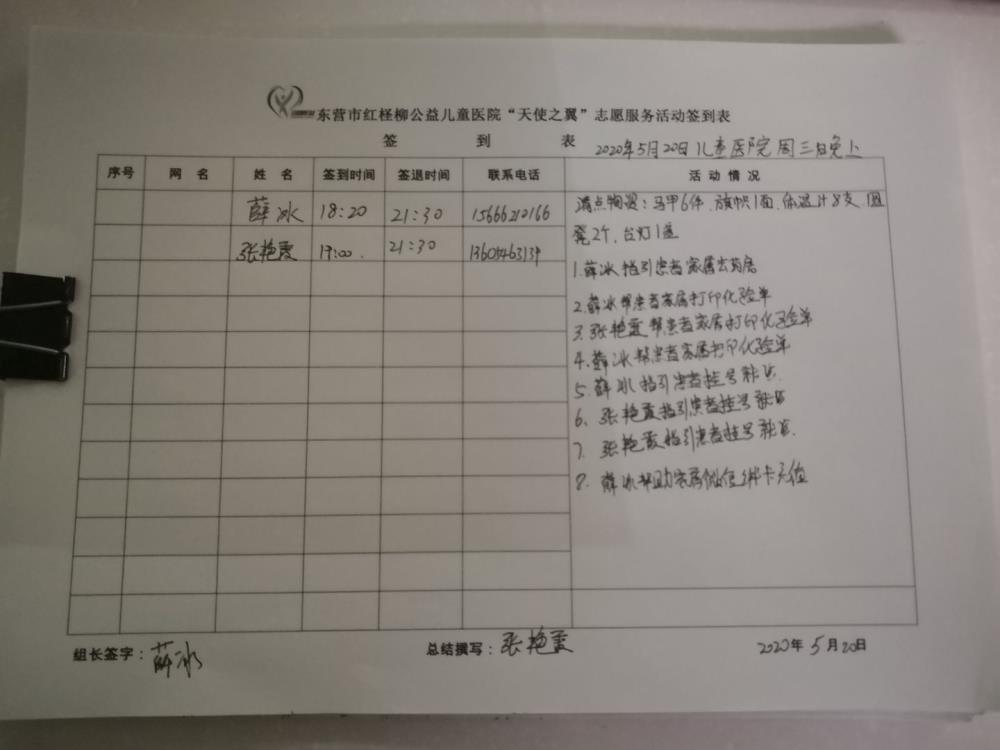 东营市红柽柳公益儿童医院“天使之翼”志愿服务活动签到表
签 到 表 2020年5月20日 儿童医院 周三晚上
序号 网 名 姓 名 签到时间 签退时间 联系电话 活 动 情 况
薛冰 18:20 21:30 15666210166
张艳霞 19:00. 21:30
清点物资:马甲6件、旗帜1面、体温计8支、圆
凳2个、台灯1盏
1.薛冰指引患者家属去药房
2.薛冰帮患者家属打印化验单
3.张艳霞帮患者家属打印化验单
4.薛冰帮患者家属打印化验单
5.薛冰指引患者挂号
6、张艳霞指引患者挂号
7.张艳霞指引患者挂号
8.薛冰帮助家属微信绑卡充值
组长签字:薛冰 总结撰写:张艳霞 2020年5月20日